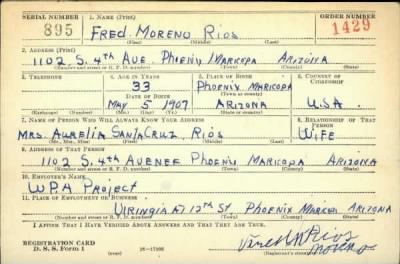 SERIAL NUMBER 1. NAME (Print) ORDER NUMBER
895 FRED. MORENO RIOS 1429
(First) (Middle) (Last)
2. ADDRESS (Print)
1102 S. 4th AVE. PHOENIX MARICOPA ARIZONA
(Number and street or R. F. D. number) (Town) (County) (State)
3. TELEPHONE 4. AGE IN YEARS 5. PLACE OF BIRTH 6. COUNTRY OF CITIZENSHIP
33 PHOENIX MARICOPA
DATE OF BIRTH (Town or county)
MAY 5 1907 ARIZONA U.S.A.
(Exchange) (Number) (Mo.) (Day) (Yr.) (State or country)
7. NAME OF PERSON WHO WILL ALWAYS KNOW YOUR ADDRESS 8. RELATIONSHIP OF THAT PERSON
MRS. AURELIA SANTACRUZ RIOS WIFE
(Mr., Mrs., Miss) (First) (Middle) (Last)
9. ADDRESS OF THAT PERSON
1102 S. 4th AVENEE PHOENIX MARICOPA ARIZONA
(Number and street or R. F. D. number) (Town) (County) (State)
10. EMPLOYER'S NAME
W.P.A PROJECT
11. PLACE OF EMPLOYMENT OR BUSINESS
VIRINGIA AT 12th ST. PHOENIX MARICO. ARIZONA
(Number and street or R. F. D. number) (Town) (County) (State)
I AFFIRM THAT I HAVE VERIFIED ABOVE ANSWERS AND THAT THEY ARE TRUE.
REGISTRATION CARD
D. S. S. FORM 1
Rios
Moreno